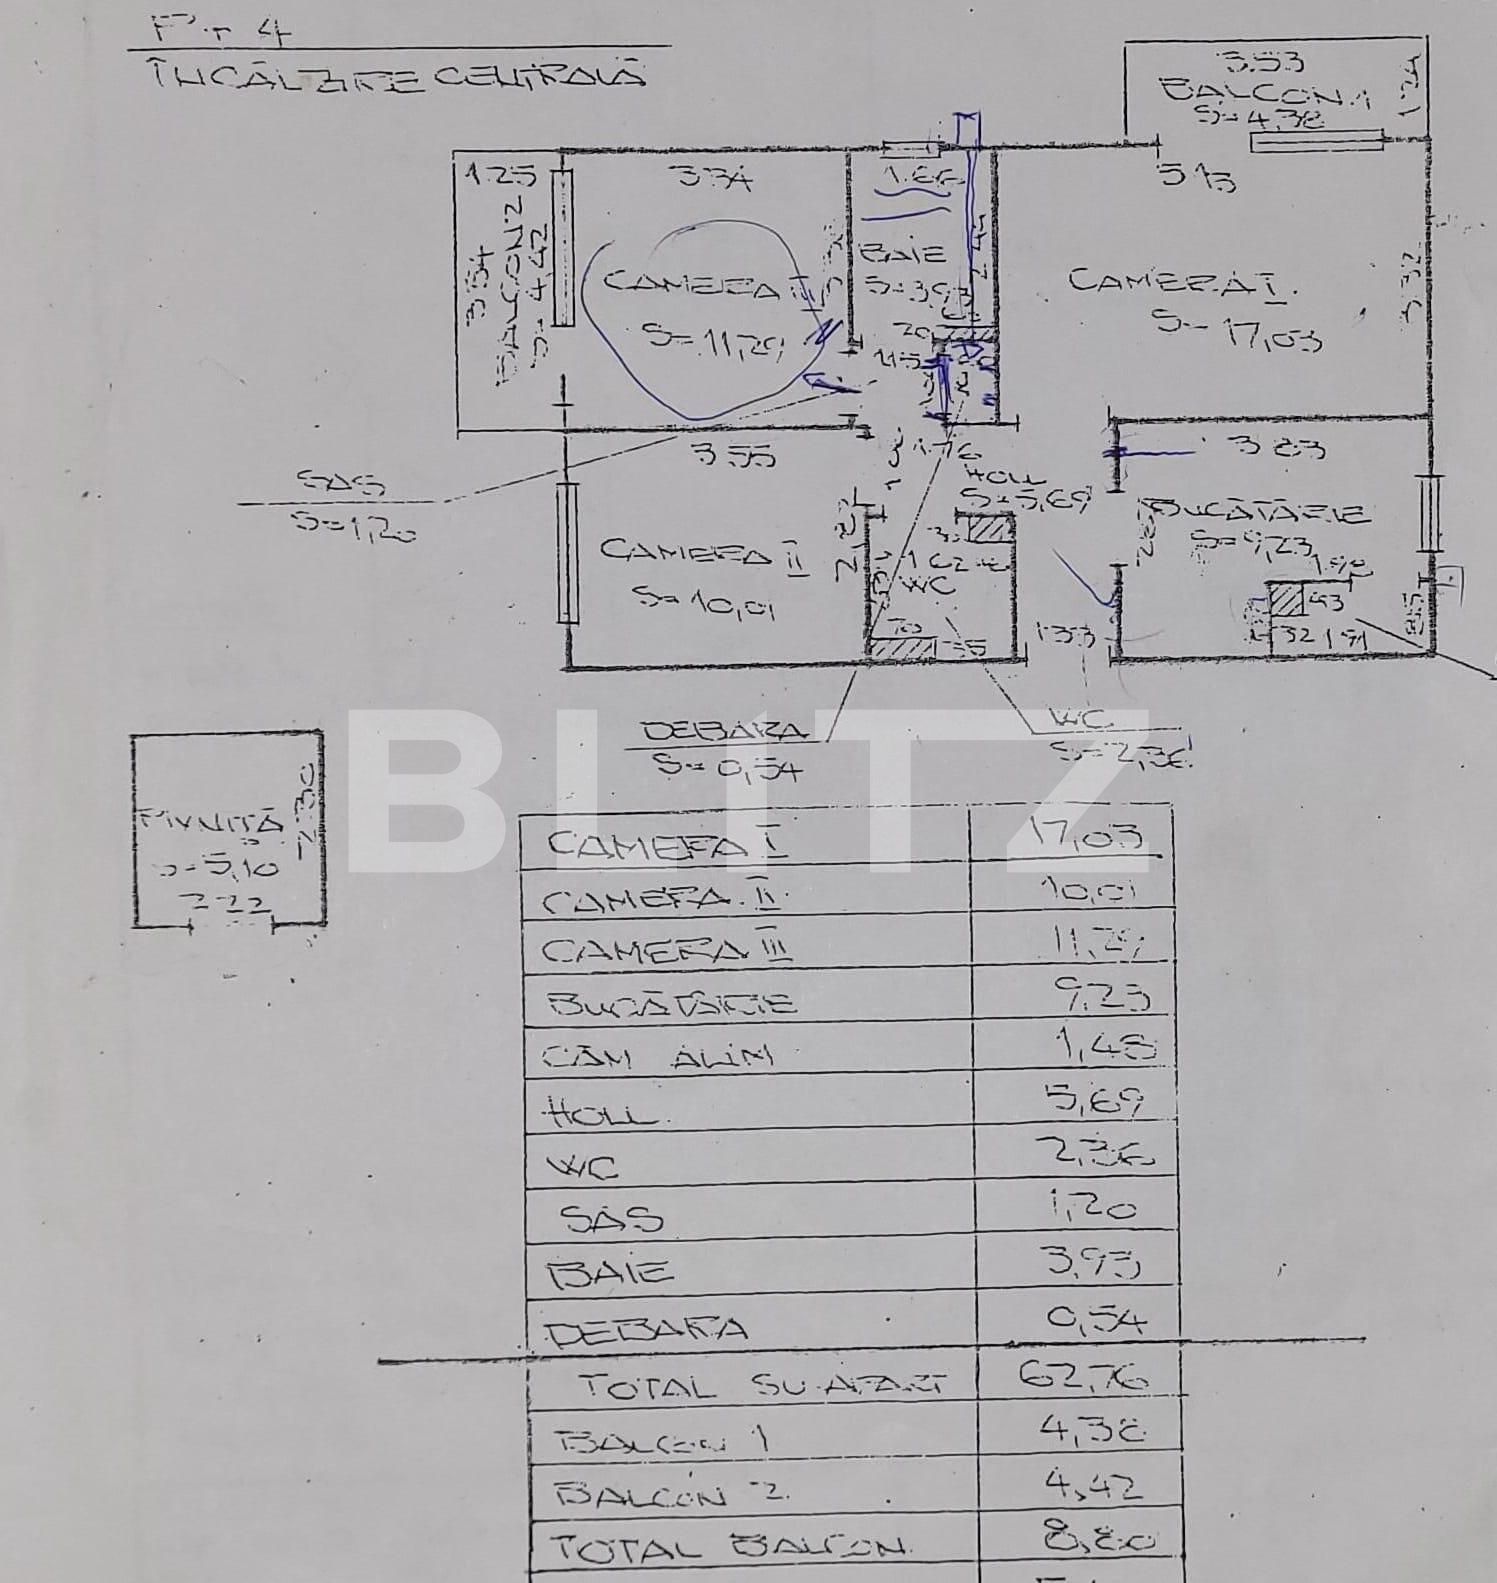 P+4
ÎNCĂLZIRE CENTRALĂ
3.53
BALCON 1
S=4,38
1.24
5.13
1.25
3.54
BALCON 2
S=4,42
3.34
CAMERA III
S=11,29
1.66
BAIE
S=3,93
CAMERA I
S=17,03
3.32
SAS
S=1,20
3.55
1.76
HOLL
S=5,69
3.23
BUCĂTĂRIE
S=9,23
CAMERA II
S=10,01
2,82
1.62
WC
70
35
1.33
93
32
1.91
DEBARA
S=0,54
WC
S=2,36
PIVNIȚĂ
S=5,10
2.30
2.22
BLITZ
CAMERA I 17,03
CAMERA II 10,01
CAMERA III 11,29
BUCĂTĂRIE 9,23
CĂM ALIM 1,48
HOLL 5,69
WC 2,36
SAS 1,20
BAIE 3,93
DEBARA 0,54
TOTAL SU.APART 62,76
BALCON 1 4,38
BALCON 2 4,42
TOTAL BALCON 8,80